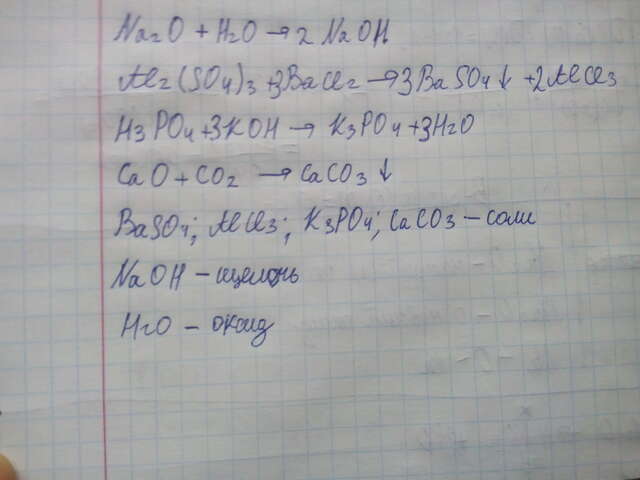 Na₂O + H₂O → 2 NaOH
Al₂(SO₄)₃ + 3BaCl₂ → 3BaSO₄↓ + 2AlCl₃
H₃PO₄ + 3KOH → K₃PO₄ + 3H₂O
CaO + CO₂ → CaCO₃↓
BaSO₄; AlCl₃; K₃PO₄; CaCO₃ – соли
NaOH – щелочь
H₂O – оксид